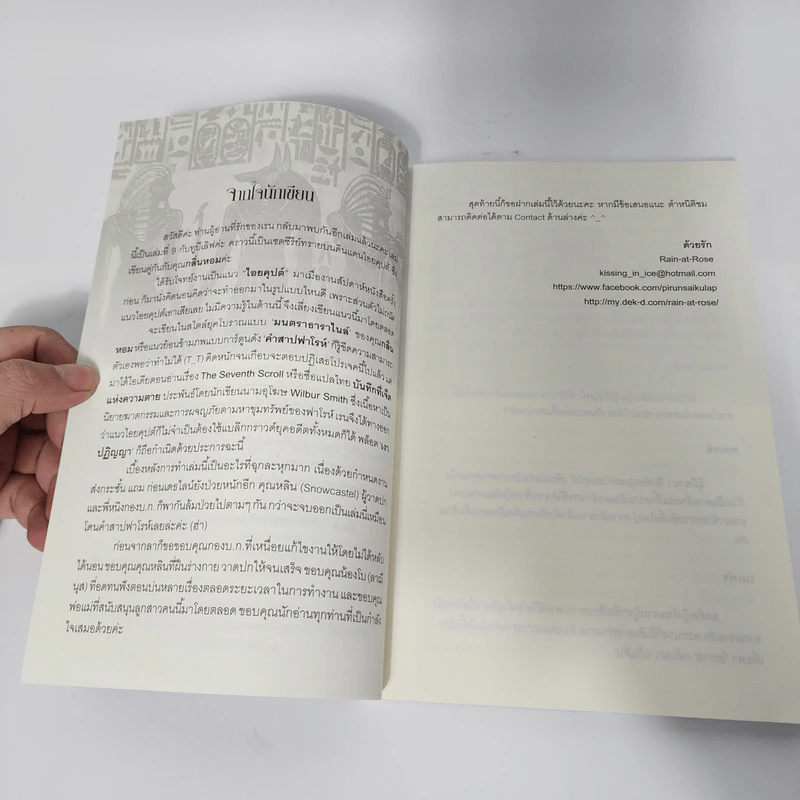 จากใจนักเขียน
สวัสดีค่ะ ฟานผู้อ่านที่รักของเรน กลับมาพบกันอีกเล่มแล้วนะคะ เล่ม
นี้เป็นเล่มที่ 9 กับทูบีเลิฟค่ะ คราวนี้เป็นเซตซีรี่ย์ทรายบนดินแดนไอยคุปต์ ซึ่ง
เขียนคู่กันกับคุณกลิ่นหอมค่ะ
ได้รับโจทย์งานเป็นแนว "ไอยคุปต์" มาเมื่องานสัปดาห์หนังสือครั้ง
ก่อน ก็มานั่งคิดนอนคิดว่าจะทำออกมาในรูปแบบไหนดี เพราะส่วนตัวไม่ถนัด
แนวไอยคุปต์เอาเสียเลย ไม่มีความรู้ในด้านนี้ จึงเลี่ยงเขียนแนวนี้มาโดยตลอด
จะเขียนในสไตล์ยุคโบราณแบบ 'มนตราธาราไนล์' ของคุณกลิ่น
หอม หรือแนวย้อนข้ามภพแบบการ์ตูนดัง 'คำสาปฟาโรห์' ก็รู้ขีดความสามารถ
ตัวเองพอว่าทำไม่ได้ (T_T) คิดหนักจนเกือบจะตอบปฏิเสธโปรเจคนี้ไปแล้ว แต่
มาได้ไอเดียตอนอ่านเรื่อง The Seventh Scroll หรือชื่อแปลไทย บันทึกที่เจ็ด
แห่งความตาย ประพันธ์โดยนักเขียนนามอุโฆษ Wilbur Smith ซึ่งเนื้อหาเป็น
นิยายฆาตกรรมและการผจญภัยตามหาขุมทรัพย์ของฟาโรห์ เรนจึงได้ทางออก
ว่าแนวไอยคุปต์ก็ไม่จำเป็นต้องใช้แบล็กกราวด์ยุคอดีตทั้งหมดก็ได้ พล็อต
ปฏิญญา' ก็ถือกำเนิดด้วยประการฉะนี้
เบื้องหลังการทำเล่มนี้เป็นอะไรที่ฉุกละหุกมาก เนื่องด้วยกำหนดงาน
ส่งกระชั้น แถม ก่อนเดธไลน์ยังป่วยหนักอีก คุณหลิน (Snowcastel) ผู้วาดปก
และพี่หนิงกองบ.ก.ก็พากันล้มป่วยไปตามๆ กัน กว่าจะจบออกเป็นเล่มนี้เหมือน
โดนคำสาปฟาโรห์เลยล่ะค่ะ (ฮ่า)
ก่อนจากลาก็ขอขอบคุณกองบ.ก.ที่เหนื่อยแก้ไขงานให้โดยไม่ได้หลับ
ได้นอน ขอบคุณคุณหลินที่ฝืนร่างกาย วาดปกให้จนเสร็จ ขอบคุณน้องโบ (ลาเม
นุส) ที่อดทนฟังตอนบ่นหลายเรื่องตลอดระยะเวลาในการทำงาน และขอบคุณ
พ่อแม่ที่สนับสนุนลูกสาวคนนี้มาโดยตลอด ขอบคุณนักอ่านทุกท่านที่เป็นกำลัง
ใจเสมอด้วยค่ะ
สุดท้ายนี้ก็ขอฝากเล่มนี้ไว้ด้วยนะคะ หากมีข้อเสนอแนะ ตำหนิติชม
สามารถติดต่อได้ตาม Contact ด้านล่างค่ะ ^_^
ด้วยรัก
Rain-at-Rose
kissing_in_ice@hotmail.com
https://www.facebook.com/pirunsaikulap
http://my.dek-d.com/rain-at-rose/